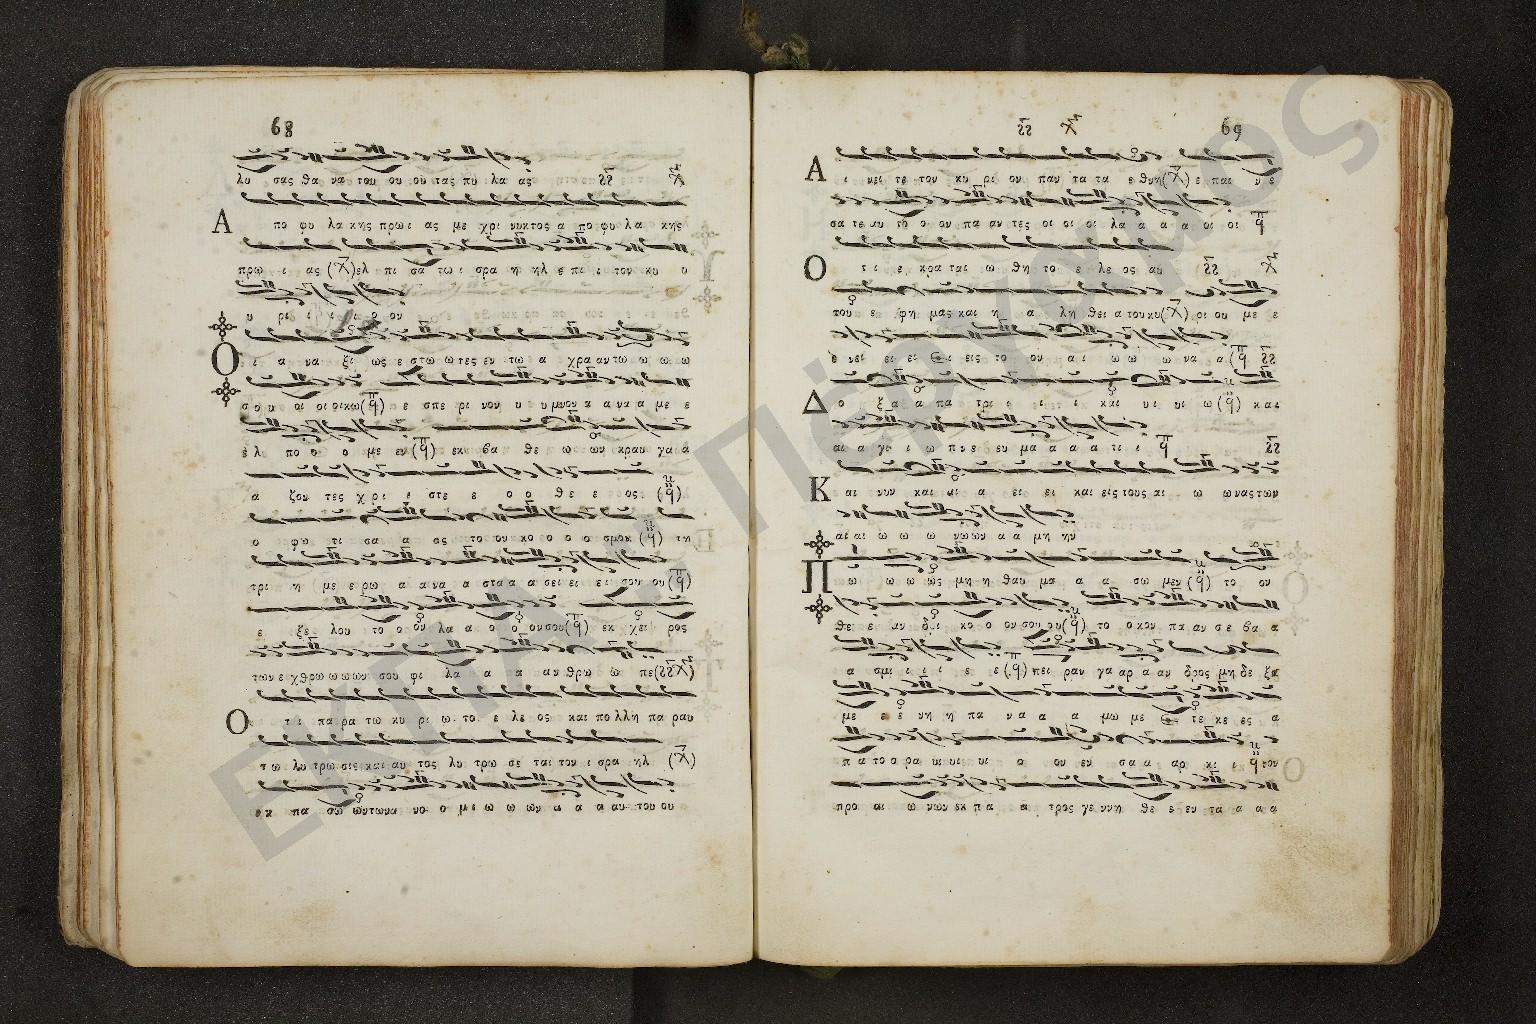 68
λυ σας θα να του ου ου τας πυ λα ας
Α πο φυ λα κης πρω ι ας με χρι νυκτος α πο φυ λα κης
πρω ι ας ελ πι σα τω ι σρα η ηλ ε πι ι τον κυ υ
υ ρι ι ι ι ο ον
Ο ι α να ξι ως ε στω ω τες εν τω α χρα αν τω ω ω ω
σ ο υ οι οι οι κω ε ε σπε ρι νον υ υ υμνον α α να α με ε
ε λ πο ο ο με εν εκ βα θε ω ων κραυ γα α
α ζον τες χρ ι ι στε ε ο ο θε ε ε ος
ο φω τι σα α ας το ον κο ο ο ο σμον τη
τρι η με ε ρω α α να α στα α α σει ει ει σου ου
ε ξε λου το ο ον λα α ο ο ον σου εκ χει ρος
των ε χθρω ω ω ων σου φι λα α α αν θρω ω πε
Ο τι πα ρα τω κυ ρι ω το ε λε ος και πο λλη πα ραυ
τω λυ τρω σις και αυ τος λυ τρω σε ται τον ι σρα ηλ
εκ πα σω ων των α νο ο μι ω ω ων α α α αυ του ου
69
Α ι νει τε τον κυ ρι ον παν τα τα ε θνη ε παι νε
σα τε αυ το ο ον πα αν τες οι οι οι λα α α α οι οι
Ο τι ε κρα ται ω θη το ε λε ος αυ
του ε φη μας και η α λη θει α του κυ ρι ου με ε
ε νει ει ει εις το ον αι ω ω ω να α
Δ ο ξα α πα τρι ι ι ι και υι υι ω και
αι α γι ι ω πνε ευ μα α α α τι ι
Κ αι νυν και αι α ει ει και εις τους αι ω ω νας των
αι αι ω ω ω νω ων α α μη ην
Π ω ω ω ως μη η θαυ μα α α σω μεν το ον
θε ε αν δρι κο ο ον σου ου το οκον πα αν σε βα α
α σμι ι ι ι ε ε πει ραν γα αρ α αν δρος μη δε ξα
με ε ε νη η πα να α α μω με τε κε ες α
πα το ο ρα υι υι υι ο ον εν σα α αρ κι ι τον
προ αι ω νων εκ πα α τρος γε ννη θε ε εν τα α α α
Εκπλ. Πέργαμος